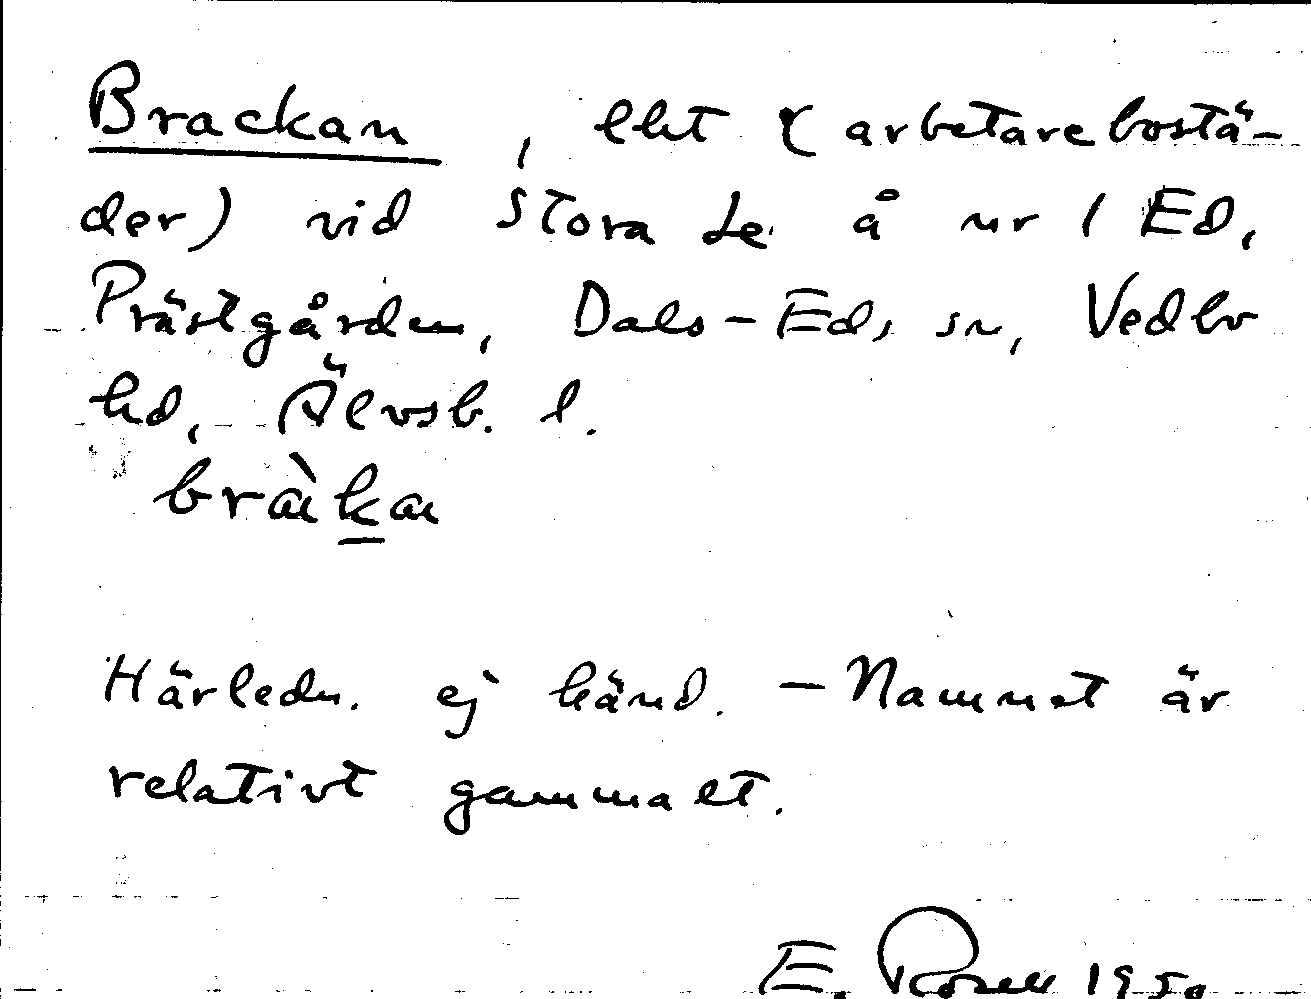 Brackan, lht (arbetarebostä-
der) vid Stora Le å nr 1 Ed,
Prästgården, Dals-Eds sn, Vedbo
hd, Älvsb. l.
bràkan
Härledn. ej känd. – Namnet är
relativt gammalt.
E. Rosell 1950